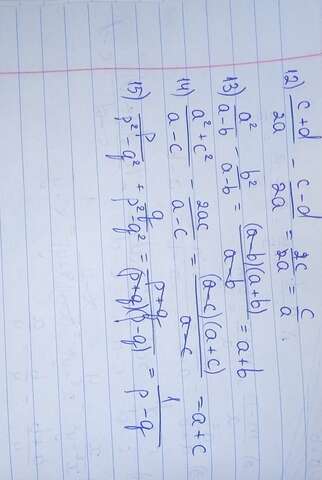 12) (c+d)/(2a) - (c-d)/(2a) = (2c)/(2a) = c/a.
13) a²/(a-b) - b²/(a-b) = ((a-b)(a+b))/(a-b) = a+b
14) (a²+c²)/(a-c) - (2ac)/(a-c) = ((a-c)(a+c))/(a-c) = a+c
15) p/(p²-q²) + q/(p²-q²) = (p+q)/((p+q)(p-q)) = 1/(p-q)